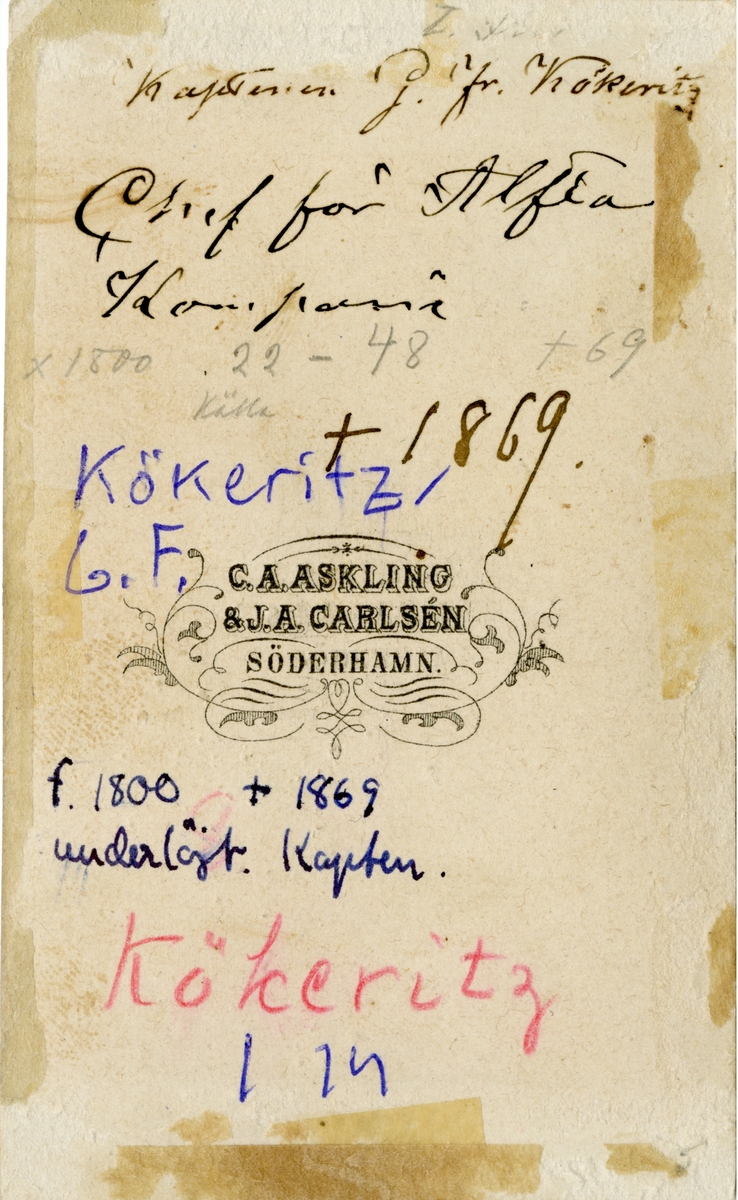 Kaptenen G. Fr. Kökeritz
Chef för Alfta
Kompani
x 1800 22 - 48 + 69
Källa
+ 1869.
Kökeritz,
G. F.
C. A. ASKLING
& J. A. CARLSÉN
SÖDERHAMN.
f. 1800 + 1869
underlöjt. Kapten.
Kökeritz
I 14